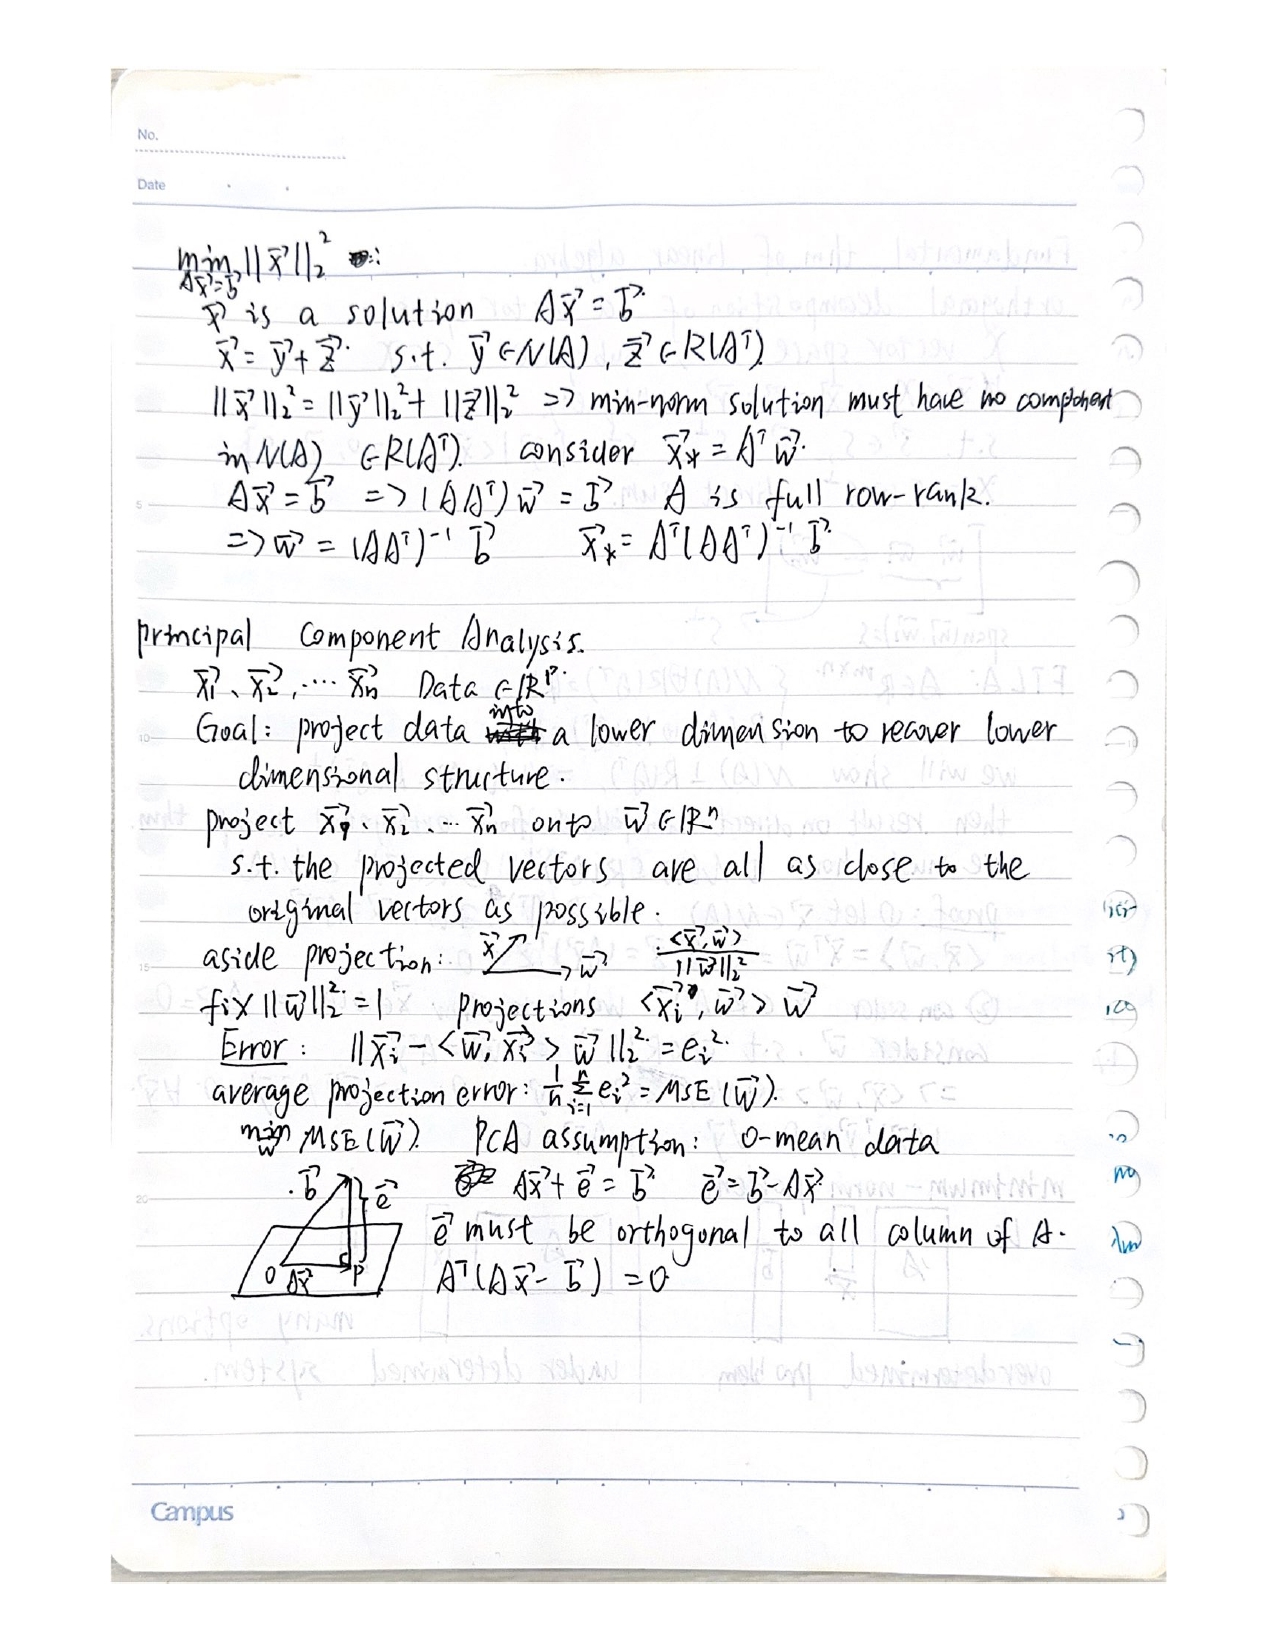 No.
Date
min ||x⃗||₂² :
Ax⃗=b⃗
x⃗ is a solution Ax⃗ = b⃗.
x⃗ = y⃗ + z⃗. s.t. y⃗ ∈ N(A), z⃗ ∈ R(Aᵀ).
||x⃗||₂² = ||y⃗||₂² + ||z⃗||₂² => min-norm solution must have no component
in N(A) ∈ R(Aᵀ). consider x⃗* = Aᵀ w⃗.
Ax⃗ = b⃗ => (AAᵀ) w⃗ = b⃗. A is full row-rank.
=> w⃗ = (AAᵀ)⁻¹ b⃗ x⃗* = Aᵀ(AAᵀ)⁻¹ b⃗.
principal Component Analysis.
x⃗₁、x⃗₂, .... x⃗n Data ∈ ℝᵖ.
Goal: project data into a lower dimension to recover lower
dimensional structure.
project x⃗₁、x⃗₂、... x⃗n onto w⃗ ∈ ℝⁿ
s.t. the projected vectors are all as close to the
original vectors as possible.
aside projection: x⃗ w⃗ . <x⃗, w⃗> / ||w⃗||₂²
fix ||w⃗||₂² = 1 projections <x⃗ᵢ, w⃗> w⃗
Error : ||x⃗ᵢ - <w⃗, x⃗ᵢ> w⃗||₂² = eᵢ².
average projection error: 1/n Σᵢ₌₁ⁿ eᵢ² = MSE (w⃗).
min MSE(w⃗). PCA assumption: 0-mean data
w⃗
. b⃗ e⃗ Ax⃗ + e⃗ = b⃗ e⃗ = b⃗ - Ax⃗
e⃗ must be orthogonal to all column of A.
O Ax⃗ P Aᵀ(Ax⃗ - b⃗) = 0
5
10
15
20
Campus